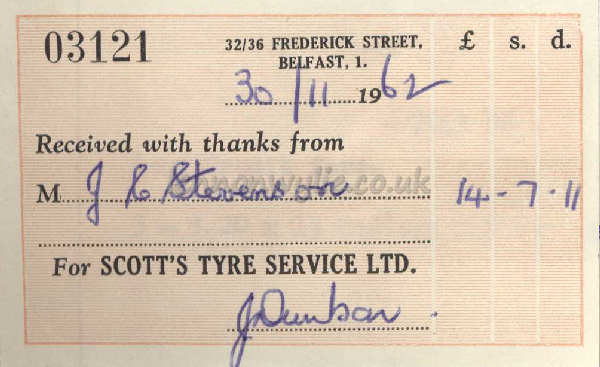 03121
32/36 FREDERICK STREET,
BELFAST, 1.
£ s. d.
30/11 1962
Received with thanks from
M J C Stevenson 14-7-11
simonwylie.co.uk
For SCOTT'S TYRE SERVICE LTD.
J Dunbar.